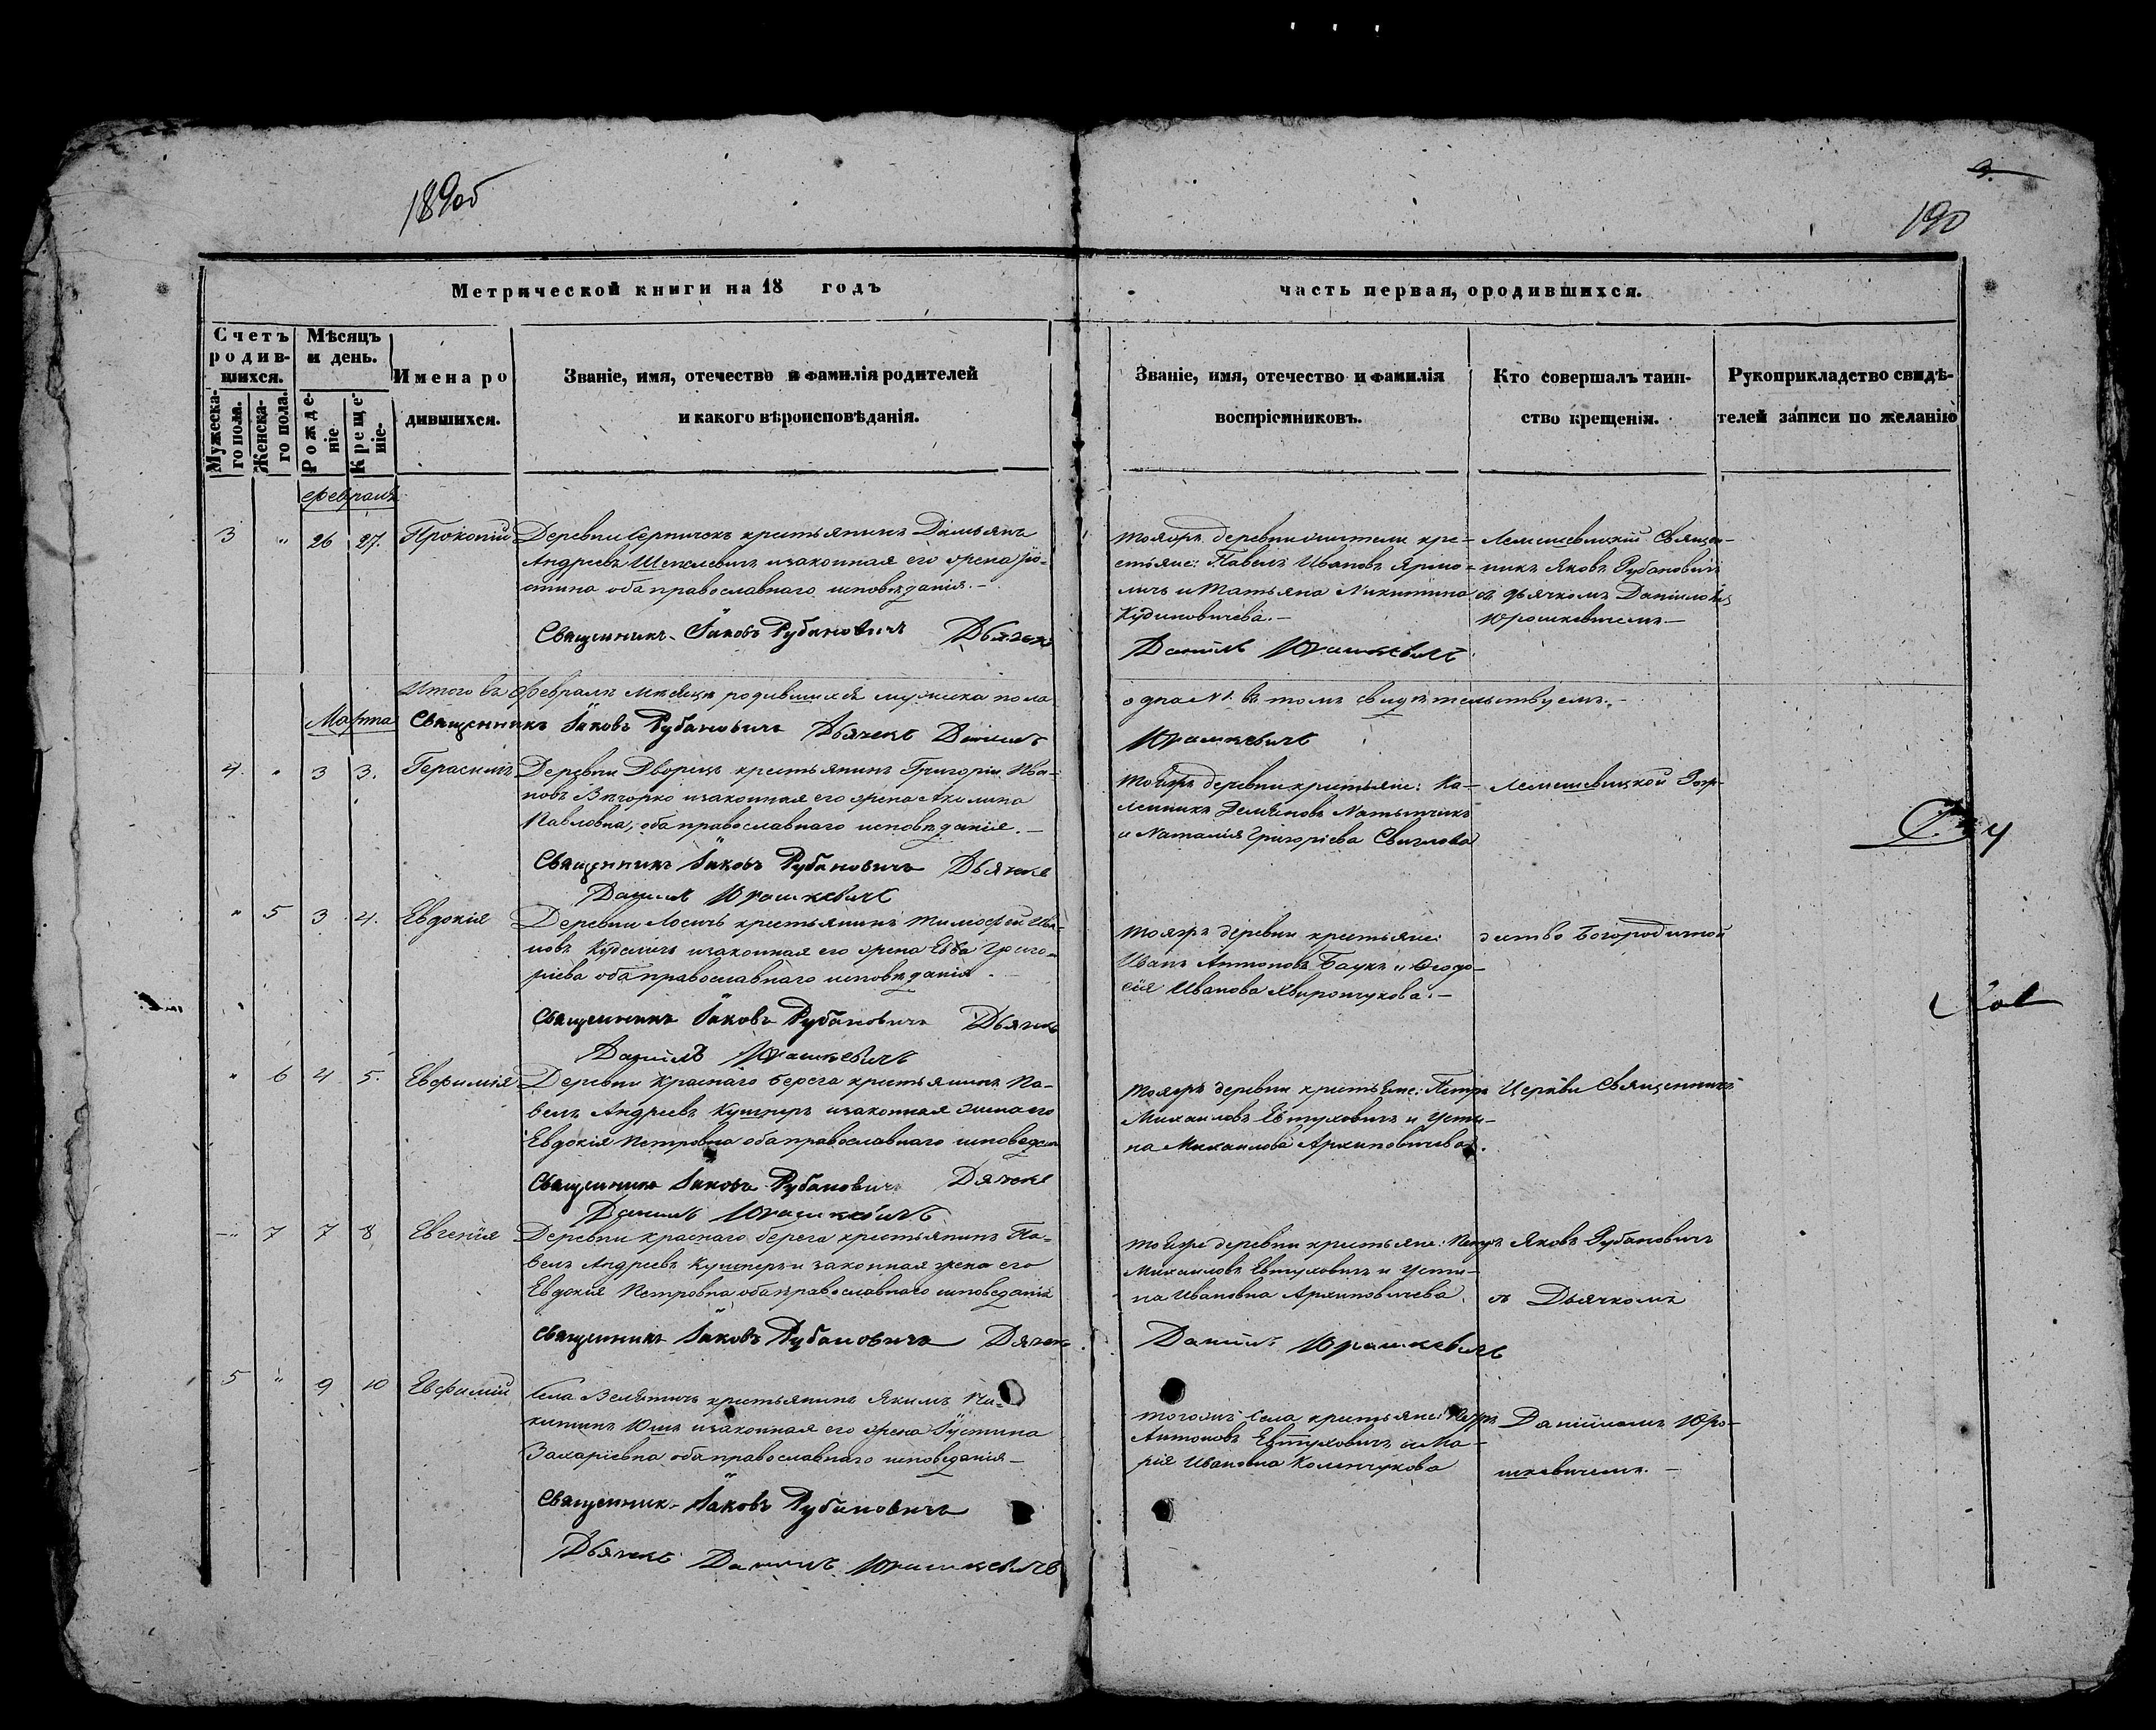 190
Метрической книги на 18 годъ
часть первая, ородившихся.
Счетъ родив-шихся.
Мужеска-го пола.
Женска-го пола.
Мѣсяцъ и день.
Рожде-ніе
Креще-ніе.
Имена ро
дившихся.
Званіе, имя, отечество и фамилія родителей
и какого вѣроисповѣданія.
Званіе, имя, отечество и фамилія
воспріемниковъ.
Кто совершалъ таин-
ство крещенія.
Рукоприкладство свидѣ-
телей записи по желанію
февраль
3 " 26 27. Прокопій
Деревни крестьянинъ Дамьянъ
Андреевъ и законная его жена
оба православнаго исповѣданія. –
Священникъ Іаковъ Рубановичъ Дьячекъ
тояжъ деревни жители кре-
стьяне: Павелъ Ивановъ Ярмо-
личъ и Татьяна Никитина
Кудиновичева. –
Даніилъ Юрашкевичъ
Лемешевицкій Священ-
никъ Яковъ Рубановичъ
съ дьячкомъ Даніиломъ
Юрошкевичемъ –
Итого въ февралѣ мѣсяцѣ родившихся мужеска пола
одна № 1. въ томъ свидѣтельствуемъ. –
Марта
Священникъ Іаковъ Рубановичъ Дьячекъ Даніилъ
Юрашкевичъ
4. " 3 3. Герасимъ
Деревни Дворецъ крестьянинъ Григорій Ива-
новъ и законная его жена Акилина
Павловна, оба православнаго исповѣданія. –
Священникъ Іаковъ Рубановичъ Дьячекъ
Даніилъ Юрашкевичъ
тойже деревни крестьяне: Ка-
ленникъ Демяновъ
и Наталія Григоріева
Лемешевицкой Рож-
" 5 3 4. Евдокія
Деревни Лосичъ крестьянинъ Тимофей Ива-
новъ и законная его жена Евва Григо-
ріева оба православнаго исповѣданія. –
Священникъ Іаковъ Рубановичъ Дьячекъ
Даніилъ Юрашкевичъ
тояжъ деревни крестьяне:
Иванъ Антоновъ Баукъ и Ѳеодо-
сія Иванова
дество Богородичной
" 6 4 5. Евфимія
Деревни Краснаго Берега крестьянинъ Па-
велъ Андреевъ Кушнеръ и законная жена его
Евдокія Петровна оба православнаго исповедан
Священникъ Іаковъ Рубановичъ Дячекъ
Даніилъ Юрашкевичъ
тояжъ деревни крестьяне: Петръ
Михаиловъ Евтуховичъ и Усти-
на Михаилова Архиповичева.
Церкви Священникъ
" 7 7 8 Евгенія
Деревни Краснаго берега крестьянинъ Па-
велъ Андреевъ Кушнеръ и законная жена его
Евдокія Петровна оба православнаго исповеданія
Священникъ Іаковъ Рубановичъ Дячекъ
тойже деревни крестьяне: Петръ
Михаиловъ Евтуховичъ и Усти-
на Ивановна Архиповичева
Даніилъ Юрашкевичъ
Яковъ Рубановичъ
съ Дьячкомъ
5 " 9 10 Евфимій
Села Велятичъ крестьянинъ Якимъ Ни-
китинъ и законная его жена Іустина
Захаріевна оба православнаго исповеданія –
Священникъ Іаковъ Рубановичъ
Дьячекъ Даніилъ Юрашкевичъ
тогожъ Села крестьяне: Петръ
Антоновъ Евтуховичъ и Ма-
рія Ивановна Коленчукова
Даніиломъ Юро-
шкевичемъ. –